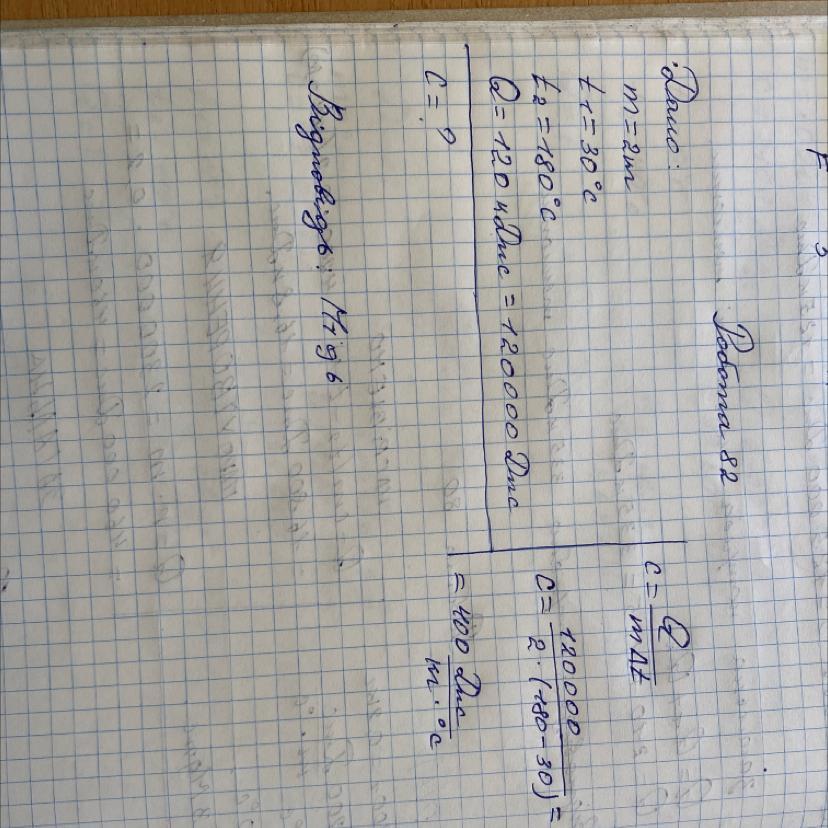 Робота 82
Дано:
m = 2т
t₁ = 30°c
t₂ = 180°c
Q = 120 кДж = 120000 Дж
c = ?
c = Q / mΔt
c = 120000 / 2 · (180 - 30) =
= 400 Дж / т · °c
Відповідь: Мідь